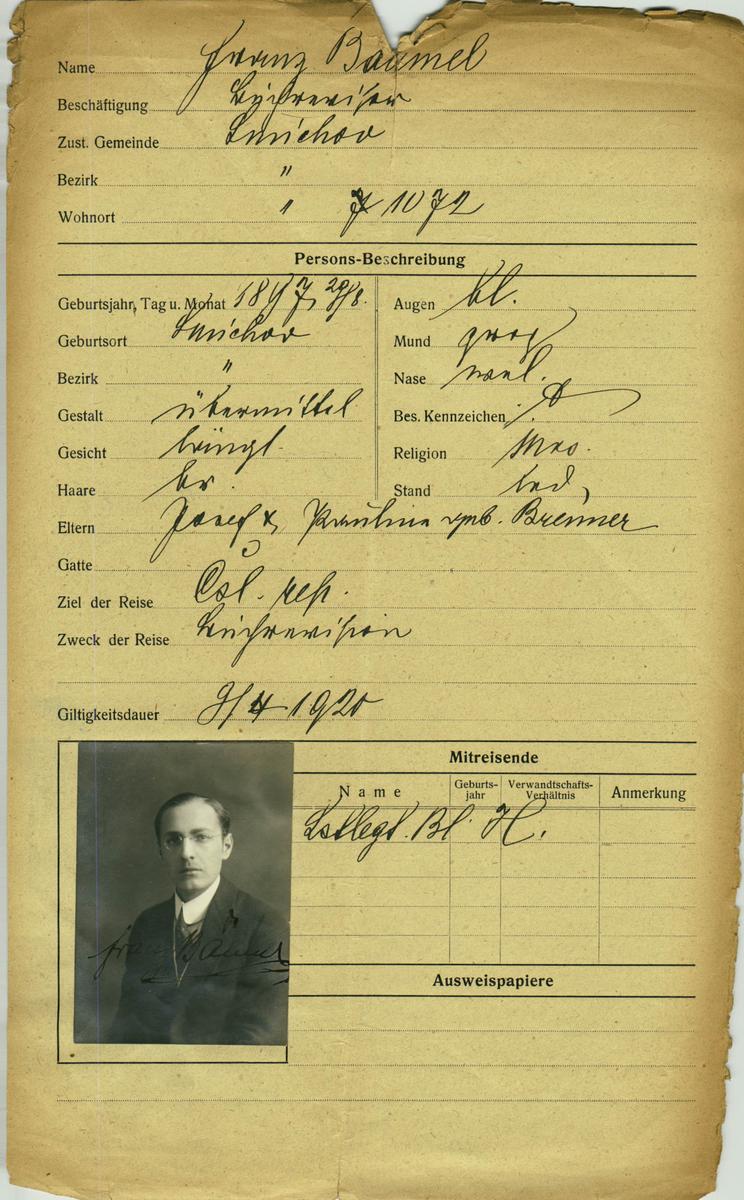 Name Franz Baumel
Beschäftigung Buchrevisor
Zust. Gemeinde Smichov
Bezirk "
Wohnort " 1072
Persons-Beschreibung
Geburtsjahr, Tag u. Monat 1897, 29/8.
Augen bl.
Geburtsort Smichov
Mund groß
Bezirk "
Nase
Gestalt übermittel
Bes. Kennzeichen ./.
Gesicht längl.
Religion mos.
Haare br.
Stand led.
Eltern Josef & Pauline geb. Brenner
Gatte
Ziel der Reise Čsl. rep.
Zweck der Reise Buchrevision
Giltigkeitsdauer 9/4 1920
Mitreisende
Name Geburts-jahr Verwandtschafts-Verhältnis Anmerkung
Bl.
Franz Bäumel
Ausweispapiere